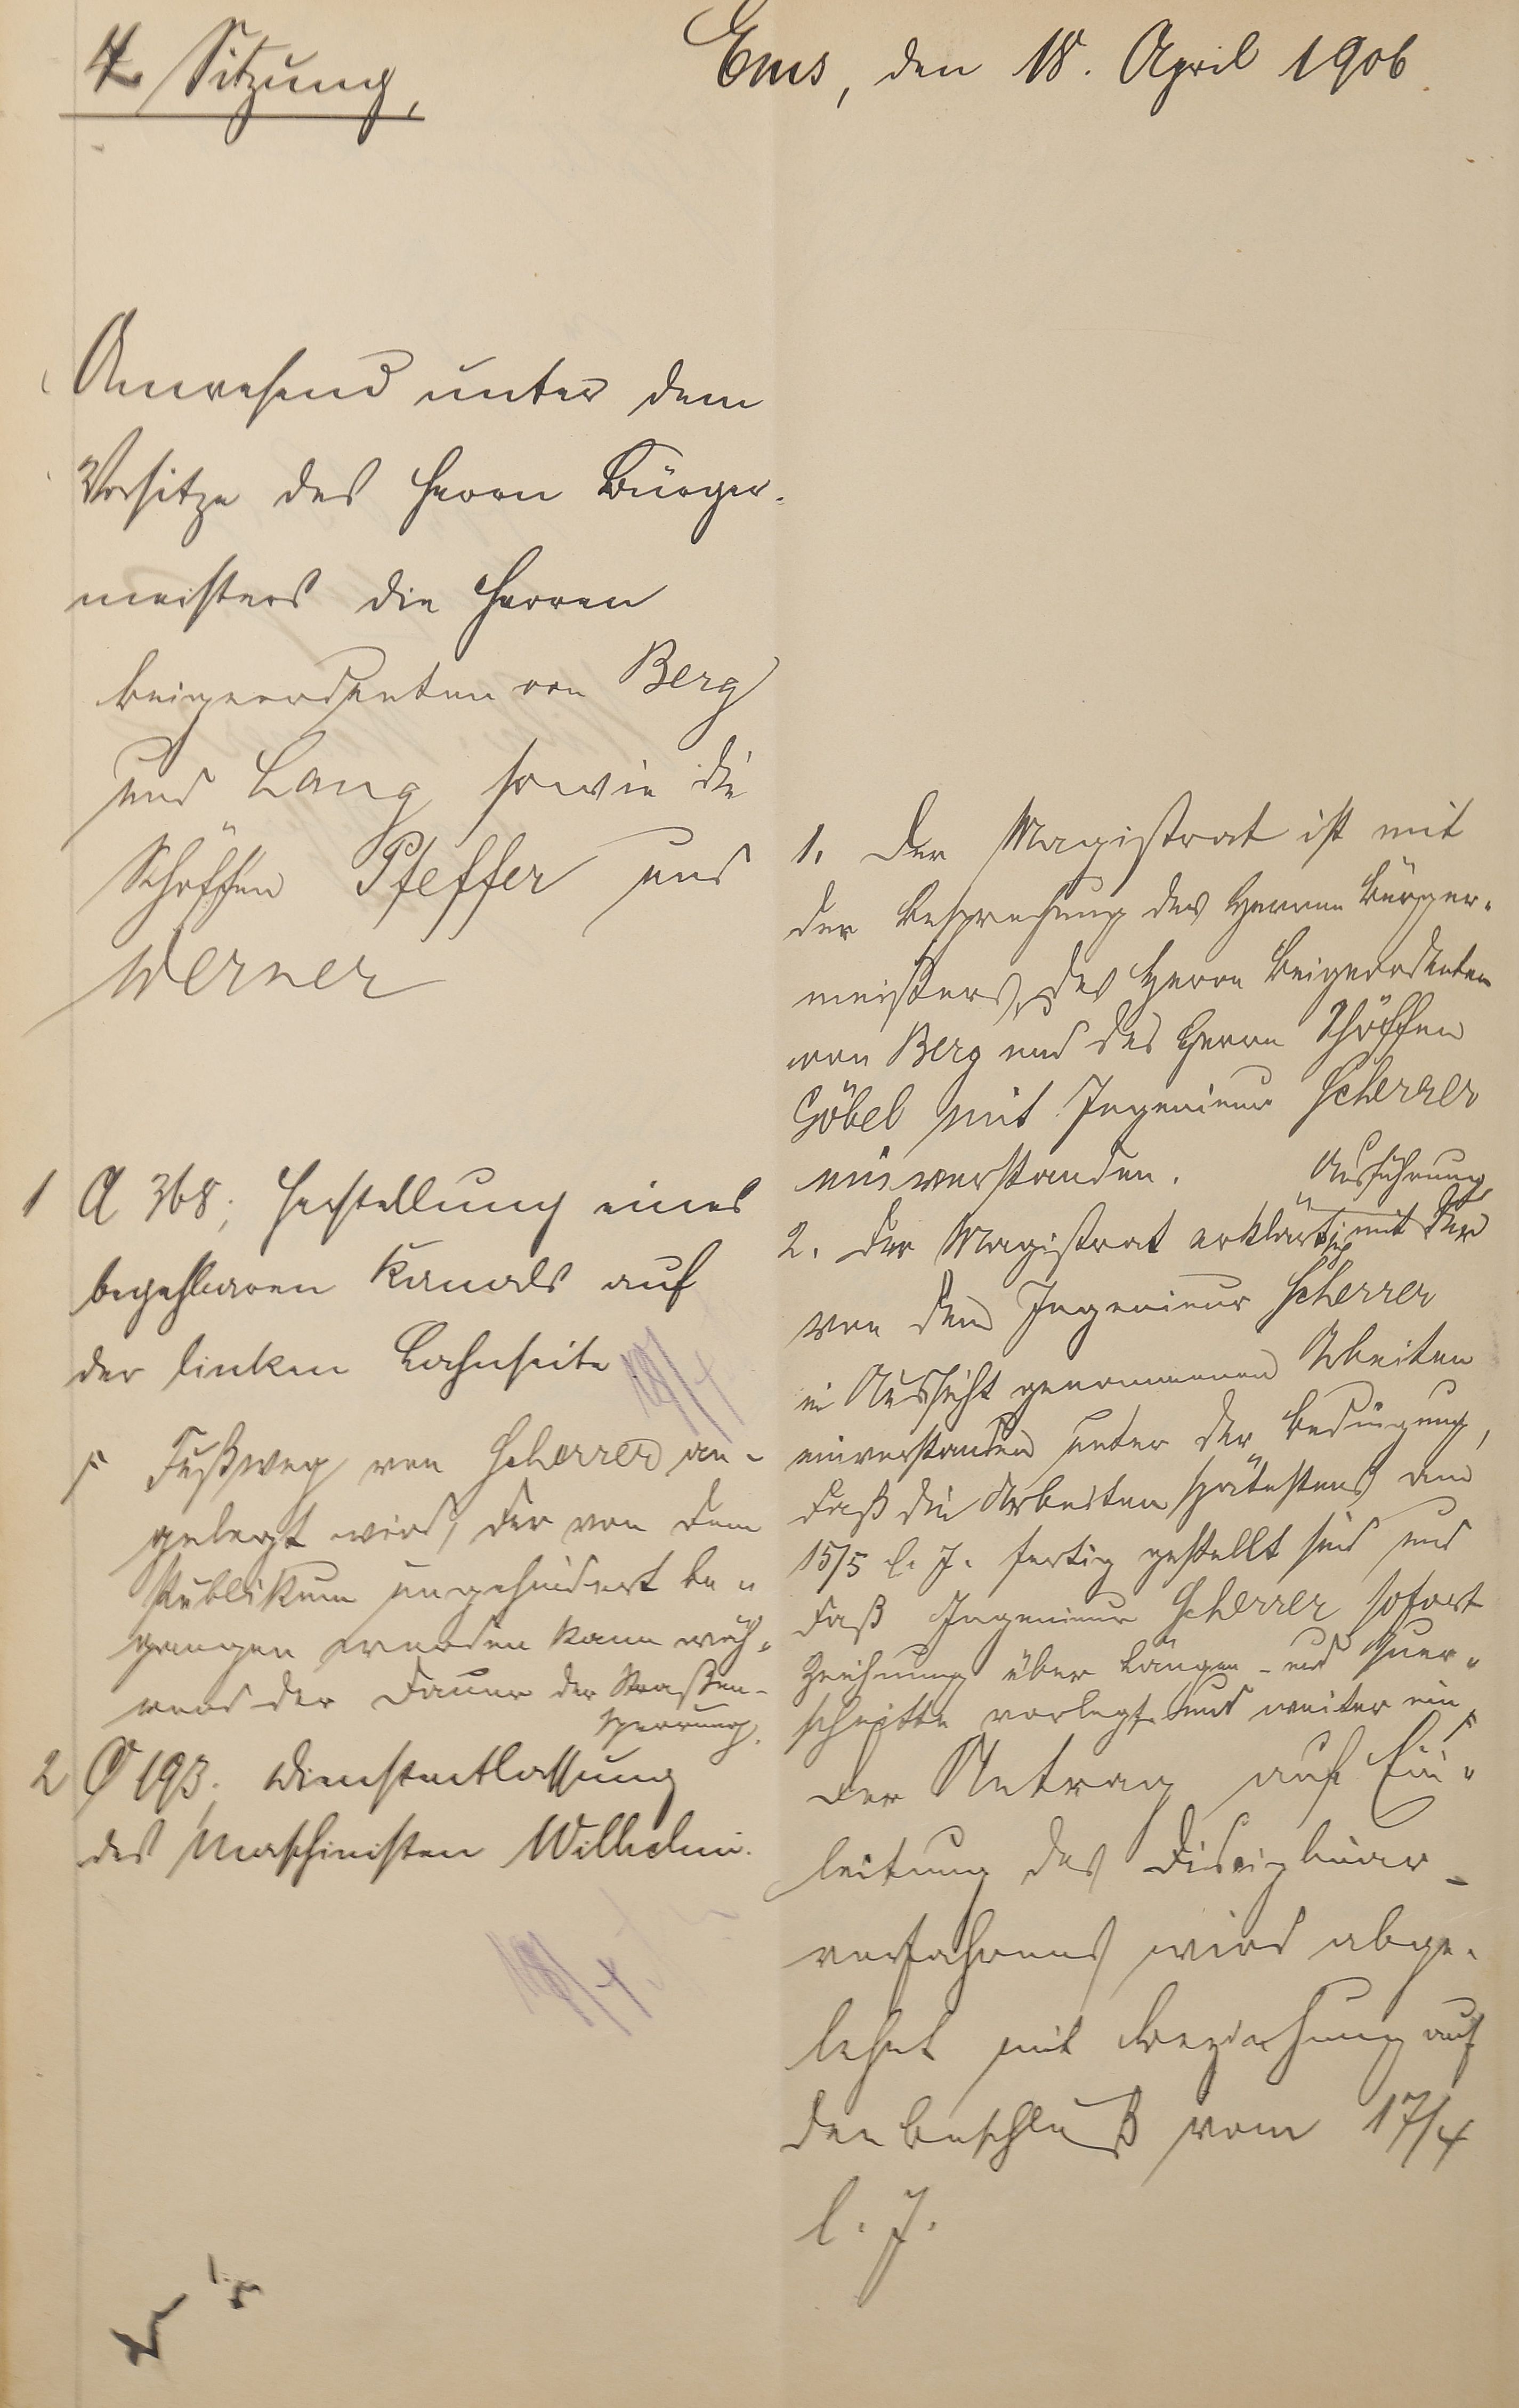 4. Sitzung,
Ems, den 18. April 1906.
Anwesend unter dem
Vorsitze des Herrn Bürger-
meisters die Herren
Beigeordneten von Berg
und Lang sowie die
Schöffen Pfeffer und
Werner
1 A 368; Herstellung eines
begehbaren Kanals auf
der linken Lahnseite
18/4
F Fußweg von Scherrer an-
gelegt wird, der von dem
Publikum ungehindert be-
gangen werden kann wäh-
rend der Dauer der Straßen-
sperrung.
2 O 193. Dienstentlassung
des Maschinisten Wilhelmi.
18/4
1. Der Magistrat ist mit
der Besprechung des Herrn Bürger-
meisters, des Herrn Beigeordneten
von Berg und des Herrn Schöffen
Göbel mit Ingenieur Scherrer
einverstanden.
Ausführung
2. Der Magistrat erklärt sich mit der
von dem Ingenieur Scherrer
in Aussicht genommenen Arbeiten
einverstanden unter der Bedingung,
daß die Arbeiten spätestens am
15/5 l. J. fertig gestellt sind und
daß Ingenieur Scherrer sofort
Zeichnung über Längen- und Quer-
schnitte vorlegt und weiter ein F
Der Antrag auf Ein-
leitung des Disziplinar-
verfahrens wird abge-
lehnt mit Beziehung auf
den Beschluß vom 17/4
l. J.